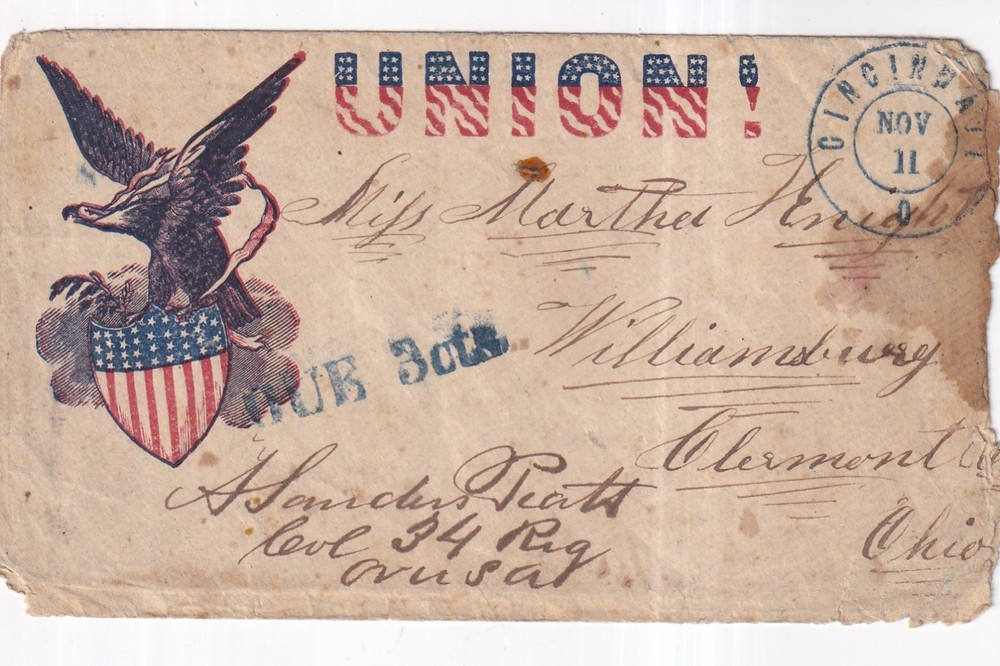 UNION!
CINCINNATI
NOV
11
O
Miss Martha Knight
Williamsburg
Clermont Co
Ohio
DUE 3cts.
A Sanders Piatt
Col 34 Reg
OVUSA